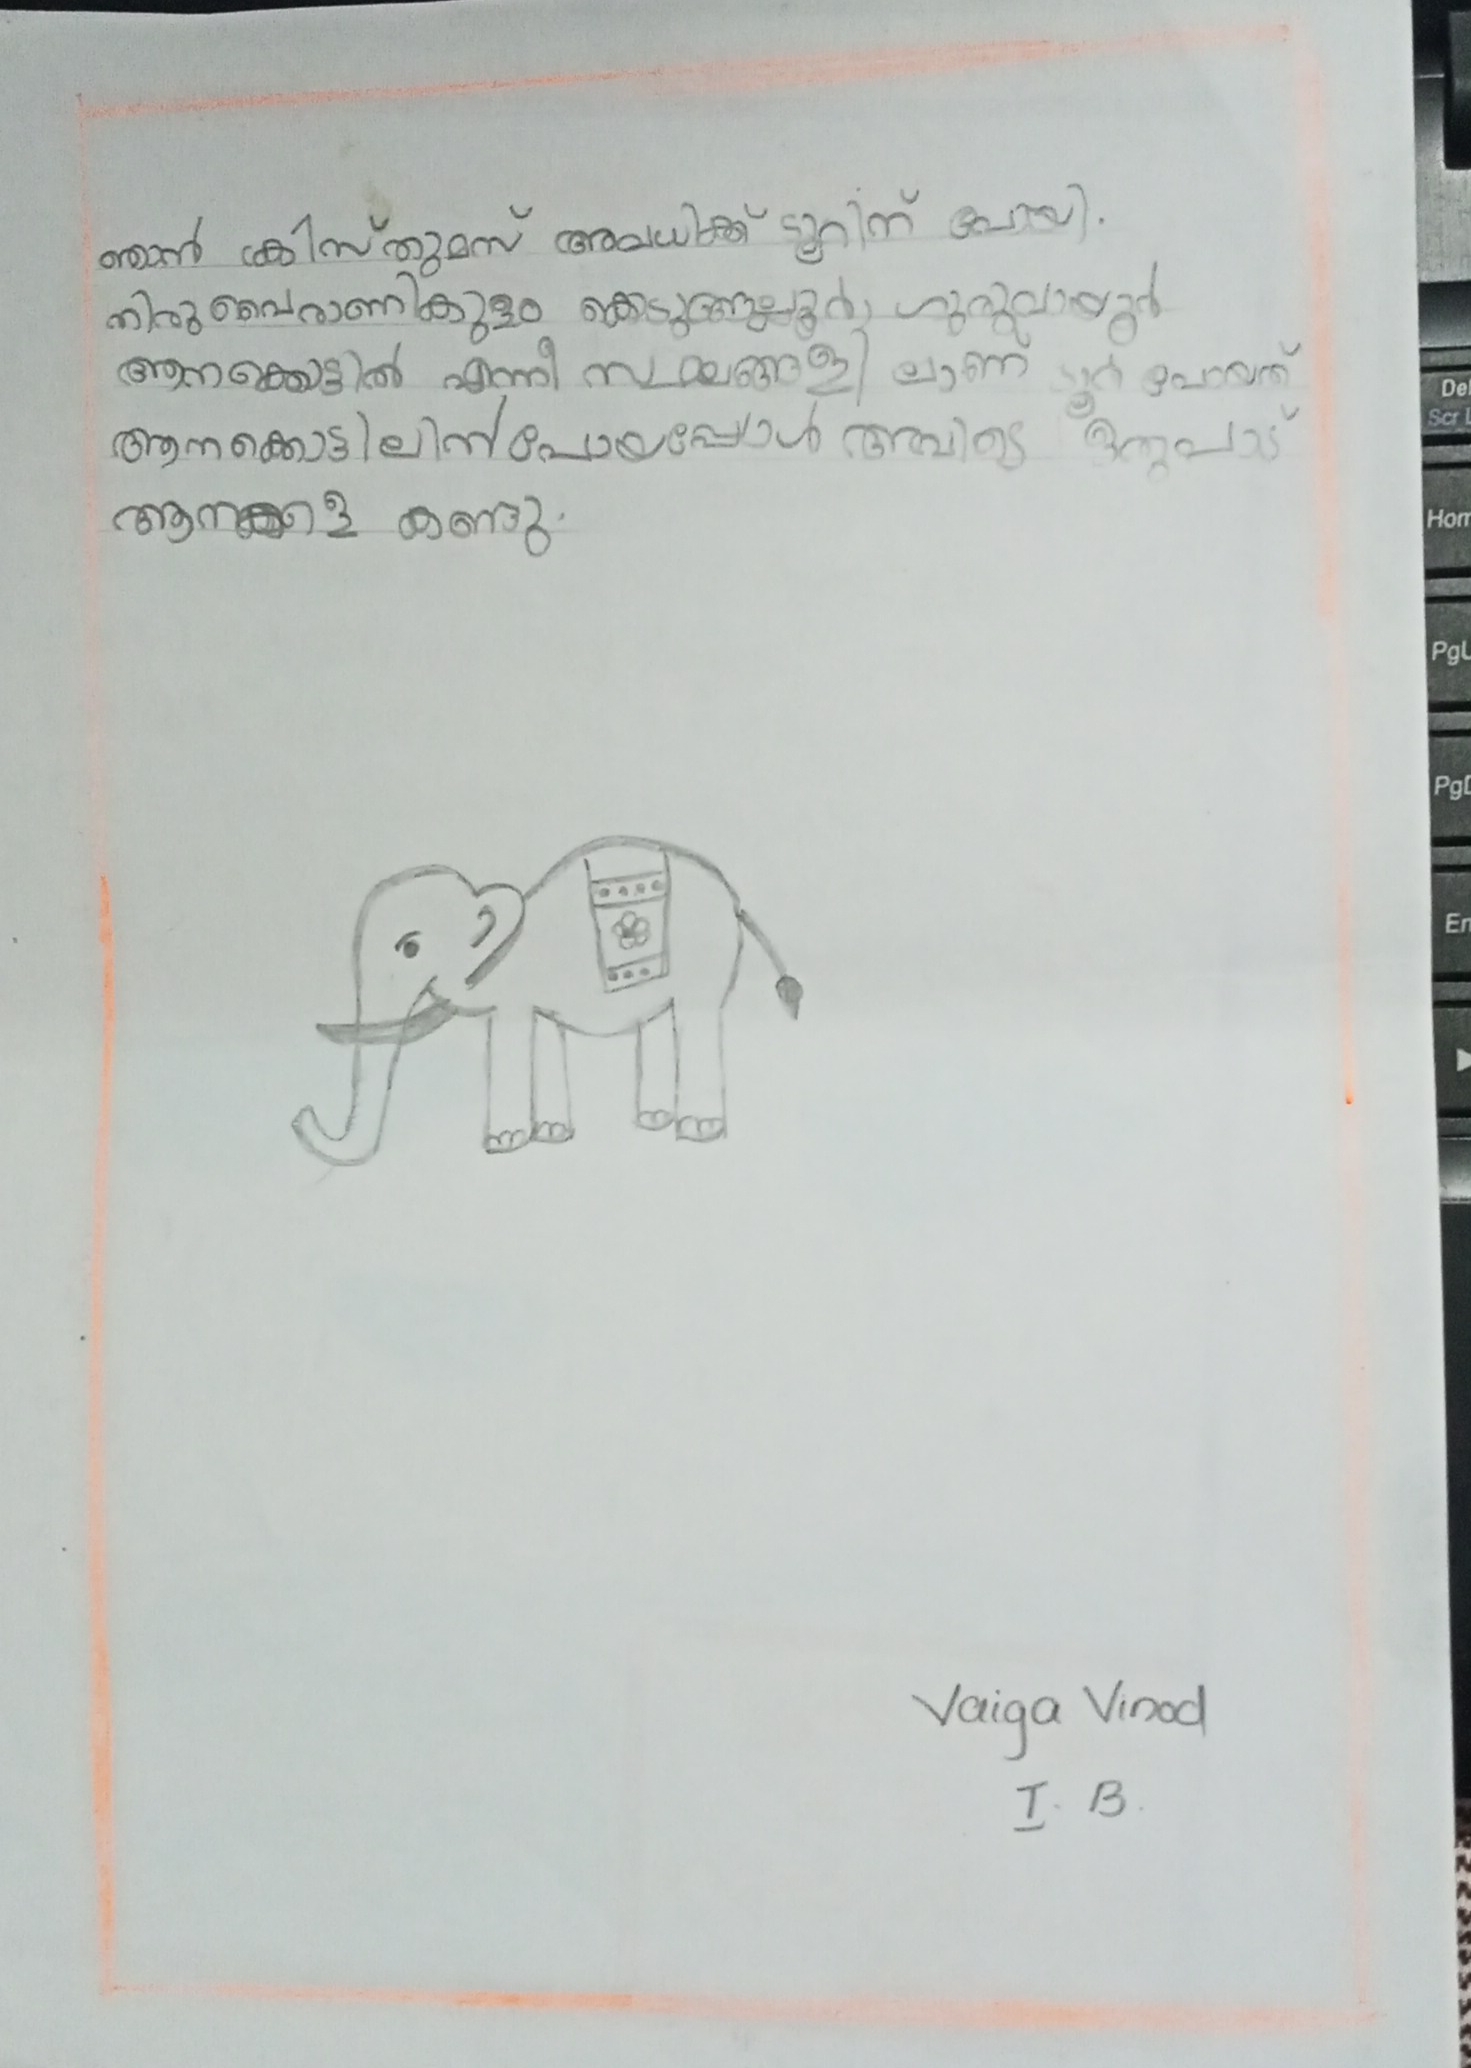 ഞാൻ ക്രിസ്തുമസ് അവധിക്ക് ടൂറിന് പോയി.
തിരുവൈരാണികുളം കൊടുങ്ങല്ലൂർ, ഗുരുവായൂർ
ആനക്കൊട്ടിൽ എന്നീ സ്ഥലങ്ങളി ലാണ് ടൂർ പോയത്
ആനക്കൊട്ടിലിന് പോയപ്പോൾ അവിടെ ഒരുപാട്
ആനക്കളെ കണ്ടു.
Vaiga Vinod
I. B.
Del
Scr L
Hom
PgU
PgD
En